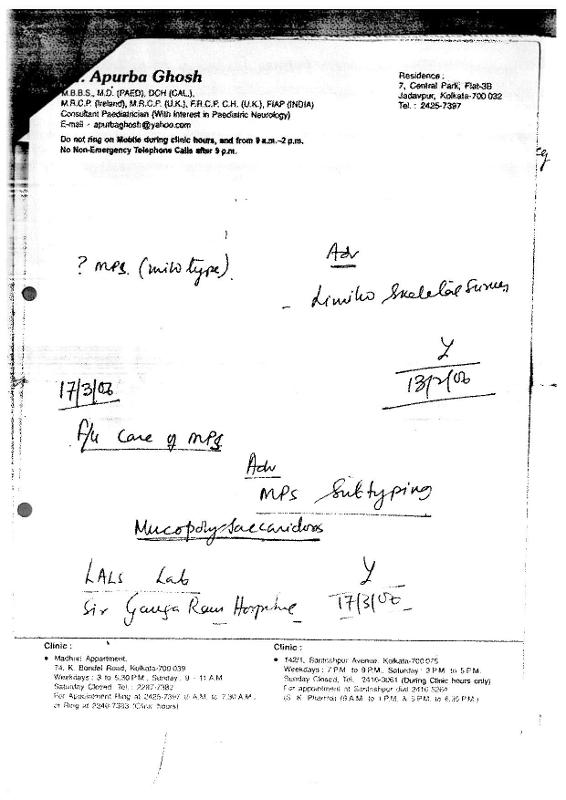 Apurba Ghosh
M.B.B.S., M.D. (PAED), DCH (CAL.),
M.R.C.P. (Ireland), M.R.C.P. (U.K.), F.R.C.P. C.H. (U.K.), FIAP (INDIA)
Consultant Paediatrician (With Interest in Paediatric Neurology)
E-mail - apurbaghosh@yahoo.com
Do not ring on Mobile during clinic hours, and from 9 a.m.–2 p.m.
No Non-Emergency Telephone Calls after 9 p.m.
Residence :
7, Central Park, Flat-3B
Jadavpur, Kolkata-700 032
Tel. : 2425-7397
? MPS (mild type).
Adv
- Limited Skeletal Survey
13/2/06
17/3/06
F/u Case of MPS
Adv
MPS Subtyping
Mucopolysaccaridoses
LALS Lab
Sir Ganga Ram Hospital
17/3/06
Clinic :
• Appartment,
74, K. Bondel Road, Kolkata-700 039
Weekdays : 3 to 5.30 P.M., Sunday : 9 - 11 A.M.
Saturday Closed. Tel. : 2287-7383
For Appointment Ring at 2425-7397 to 7.30 A.M.,
or Ring at (Clinic hours)
Clinic :
• 142/1, Santoshpur Avenue, Kolkata-700 075
Weekdays : 7 P.M. to 9 P.M., Saturday : 3 P.M. to 5 P.M.
Sunday Closed, Tel. 2416-3061 (During Clinic hours only)
For appointment at Santoshpur dial 2416 5264
(S. K. Pharma) (9 A.M. to 1 P.M. & 5 P.M. to 8.30 P.M.)